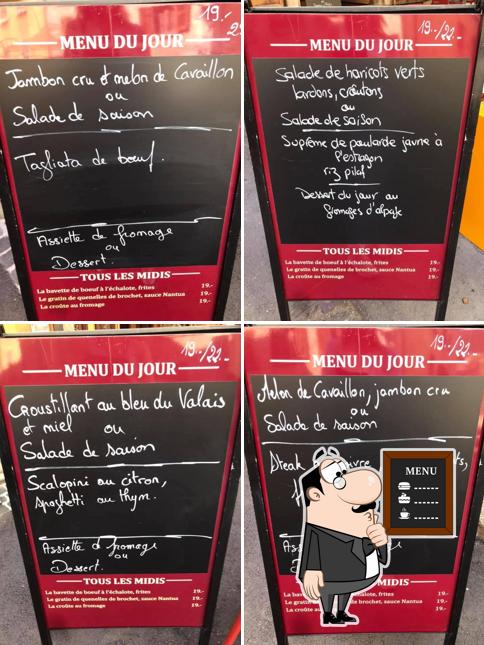 19.-
MENU DU JOUR
Jambon cru et melon de Cavaillon
ou
Salade de saison
Tagliata de bœuf.
Assiette de fromage
ou
Dessert.
TOUS LES MIDIS
La bavette de boeuf à l'échalote, frites 19.-
Le gratin de quenelles de brochet, sauce Nantua 19.-
La croûte au fromage 19.-
19.-/22.-
MENU DU JOUR
Salade de haricots verts
lardons, croûtons
ou
Salade de saison
Suprême de poularde jaune à
l'estragon
riz pilaf
Dessert du jour ou
fromages d'alpage
TOUS LES MIDIS
La bavette de boeuf à l'échalote, frites 19.-
Le gratin de quenelles de brochet, sauce Nantua 19.-
La croûte au fromage 19.-
19.-/22.-
MENU DU JOUR
Croustillant au bleu du Valais
et miel ou
Salade de saison
Scalopini au citron,
spaghetti au thym.
Assiette d fromage
ou
Dessert.
TOUS LES MIDIS
La bavette de boeuf à l'échalote, frites 19.-
Le gratin de quenelles de brochet, sauce Nantua 19.-
La croûte au fromage 19.-
19.-/22.-
MENU DU JOUR
Melon de Cavaillon, jambon cru
ou
Salade de saison
Steak
MENU
MIDIS
La bav échalote, frites 19.-
Le grati de brochet, sauce Nantua 19.-
La croûte au 19.-